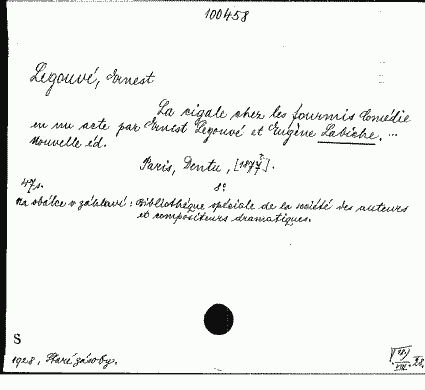 100458
Legouvé, Ernest
La cigale chez les fourmis Comédie
en un acte par Ernest Legouvé et Eugène Labiche. ...
Nouvelle éd.
Paris, Dentu, [1877].
47s. 8°
Na obálce v záhlaví: Bibliothéque spéciale de la société des auteurs
et compositeurs dramatiques.
S
1928, Staré zásoby.
VIII. 28.